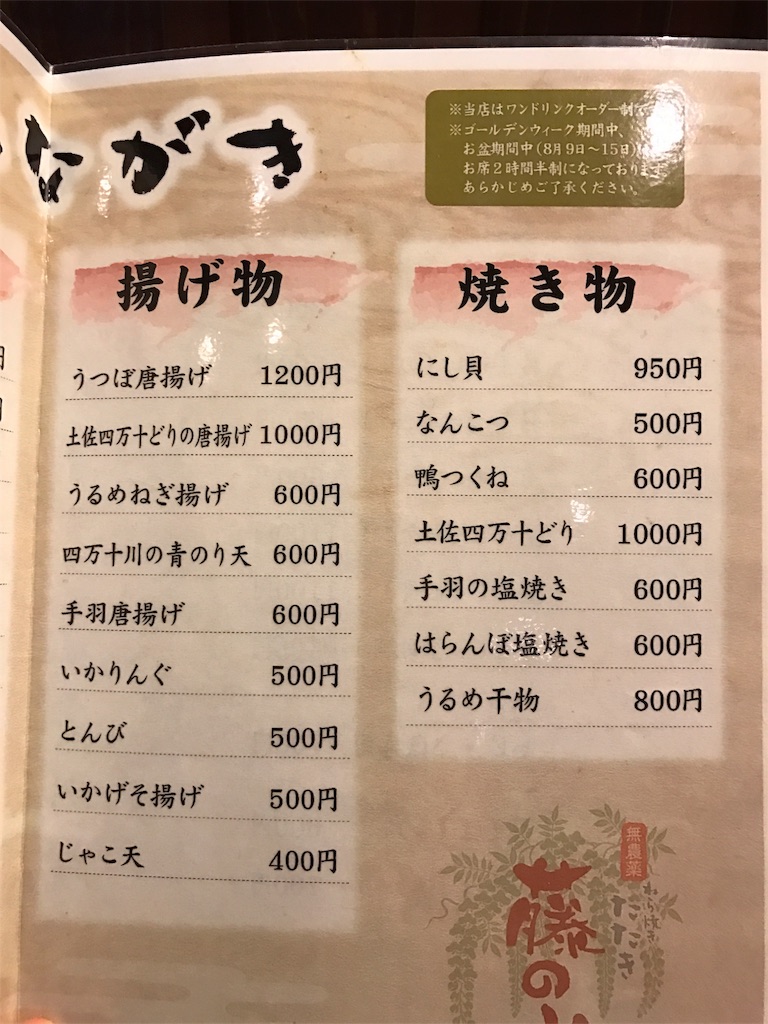 ながき
※当店はワンドリンクオーダー制
※ゴールデンウィーク期間中、
お盆期間中(8月9日〜15日)は
お席2時間半制になっております
あらかじめご了承ください。
揚げ物
うつぼ唐揚げ 1200円
土佐四万十どりの唐揚げ 1000円
うるめねぎ揚げ 600円
四万十川の青のり天 600円
手羽唐揚げ 600円
いかりんぐ 500円
とんび 500円
いかげそ揚げ 500円
じゃこ天 400円
焼き物
にし貝 950円
なんこつ 500円
鴨つくね 600円
土佐四万十どり 1000円
手羽の塩焼き 600円
はらんぼ塩焼き 600円
うるめ干物 800円
無農薬
わら焼き
たたき
藤の